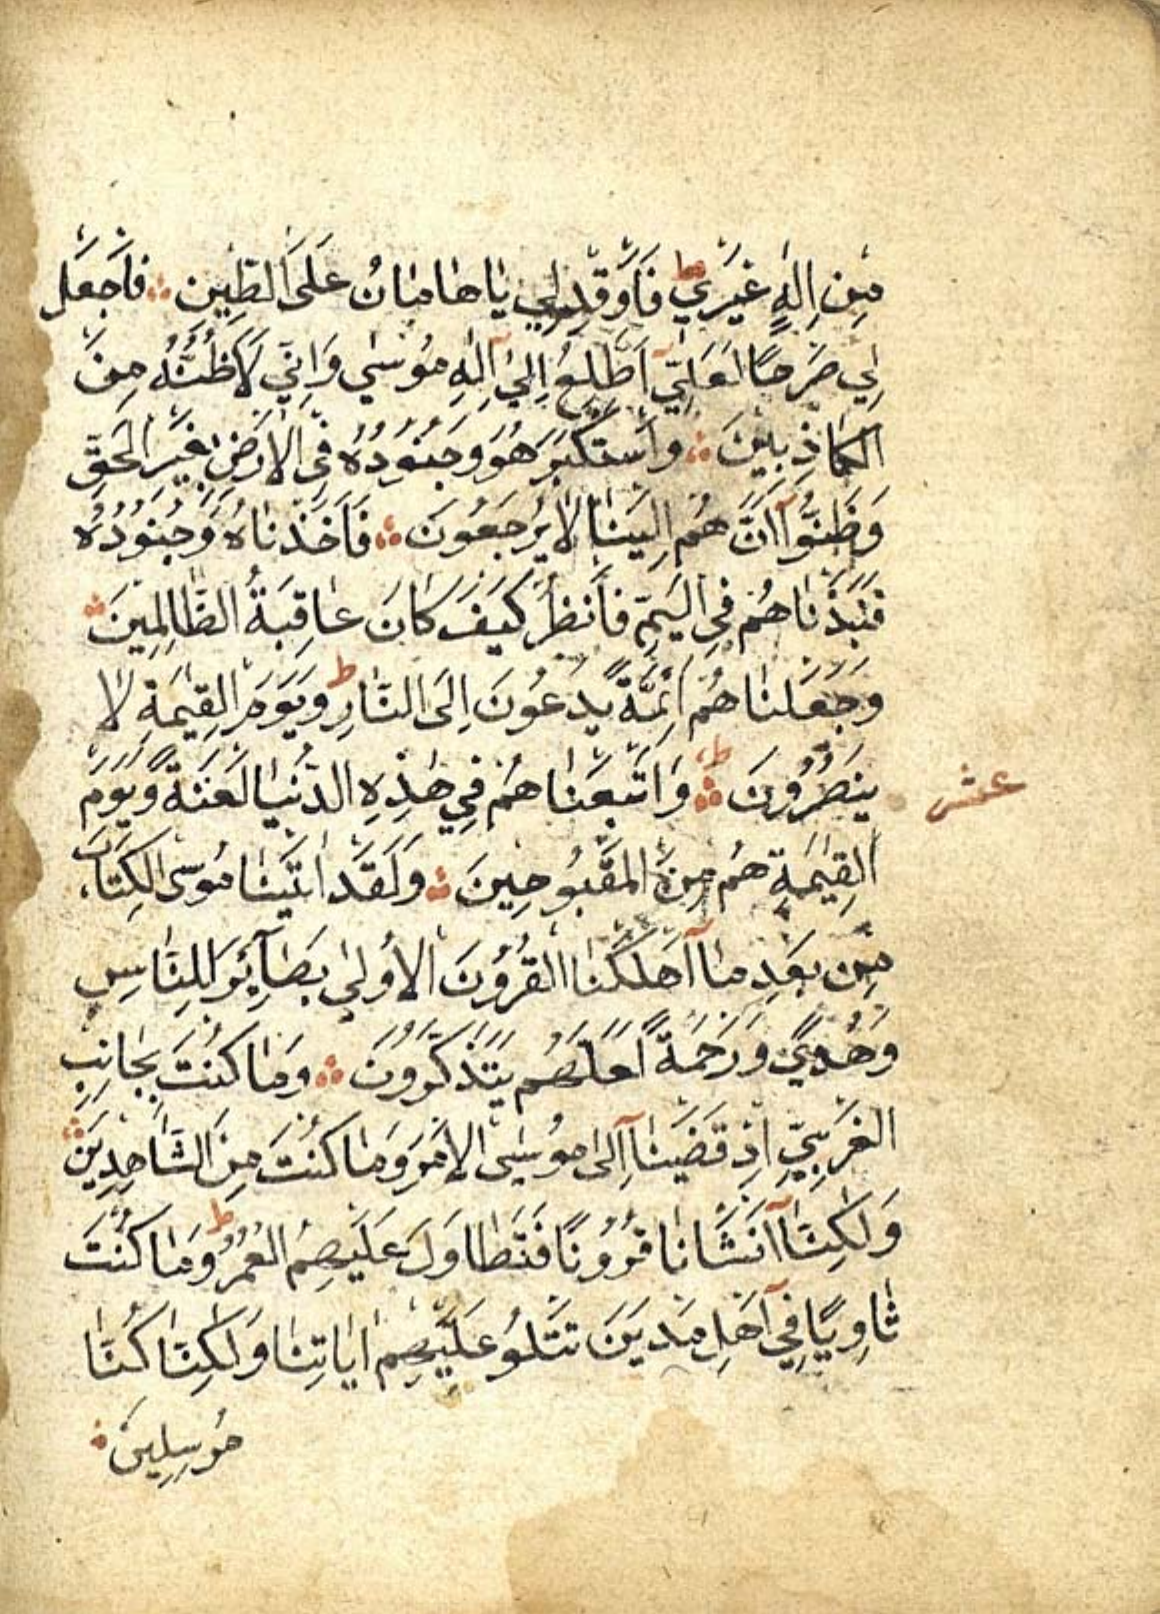 مِنْ اِلٰهٍ غَيْرِيۚ ط فَاَوْقِدْ لِي يٰا هٰامٰانُ عَلَى الطّٖينِ فَاجْعَلْ
لِي صَرْحًا لَعَلِّيٓ اَطَّلِعُ اِلٰٓى اِلٰهِ مُوسٰي وَاِنّٖي لَاَظُنُّهُ مِنَ
الكٰاذِبِينَ وَاسْتَكْبَرَ هُوَ وَجُنُودُهُ فِي الاَرْضِ بِغَيْرِ الْحَقِّ
وَظَنُّوٓا اَنَّ هُمْ اِلَيْنٰا لٰا يُرْجَعُونَ فَاَخَذْنٰاهُ وَجُنُودُهُ
فَنَبَذْنٰاهُمْ فِي اليَمِّ فَانْظُرْ كَيْفَ كَانَ عٰاقِبَةُ الظّٰالِمِينَ
وَجَعَلْنٰاهُمْ اَئِمَّةً يَدْعُونَ اِلَى النّٰارِ ط وَيَوْمَ القِيٰمَةِ لٰا
يُنْصَرُونَ ط وَاَتْبَعْنٰاهُمْ فِي هٰذِهِ الدُّنْيٰا لَعْنَةً وَيَوْمَ
عشر
القِيٰمَةِ هُمْ مِنَ المَقْبُوحِينَ وَلَقَدْ اٰتَيْنٰا مُوسَى الكِتَابَ
مِنْ بَعْدِ مٰٓا اَهْلَكْنَا القُرُونَ الاُولٰي بَصَآئِرَ لِلنّٰاسِ
وَهُدًي وَرَحْمَةً لَعَلَّهُمْ يَتَذَكَّرُونَ وَمٰا كُنْتَ بِجٰانِبِ
الغَرْبِيِّ اِذْ قَضَيْنٰٓا اِلٰى مُوسَى الاَمْرَ وَمٰا كُنْتَ مِنَ الشَّاهِدِينَ
وَلٰكِنّٰٓا اَنْشَاْنٰا قُرُونًا فَتَطٰاوَلَ عَلَيْهِمُ العُمُرُ ط وَمٰا كُنْتَ
ثٰاوِيًا فِيٓ اَهْلِ مَدْيَنَ تَتْلُو عَلَيْهِمْ اٰيٰاتِنٰا وَلٰكِنّٰا كُنّٰا
مُرْسِلِينَ